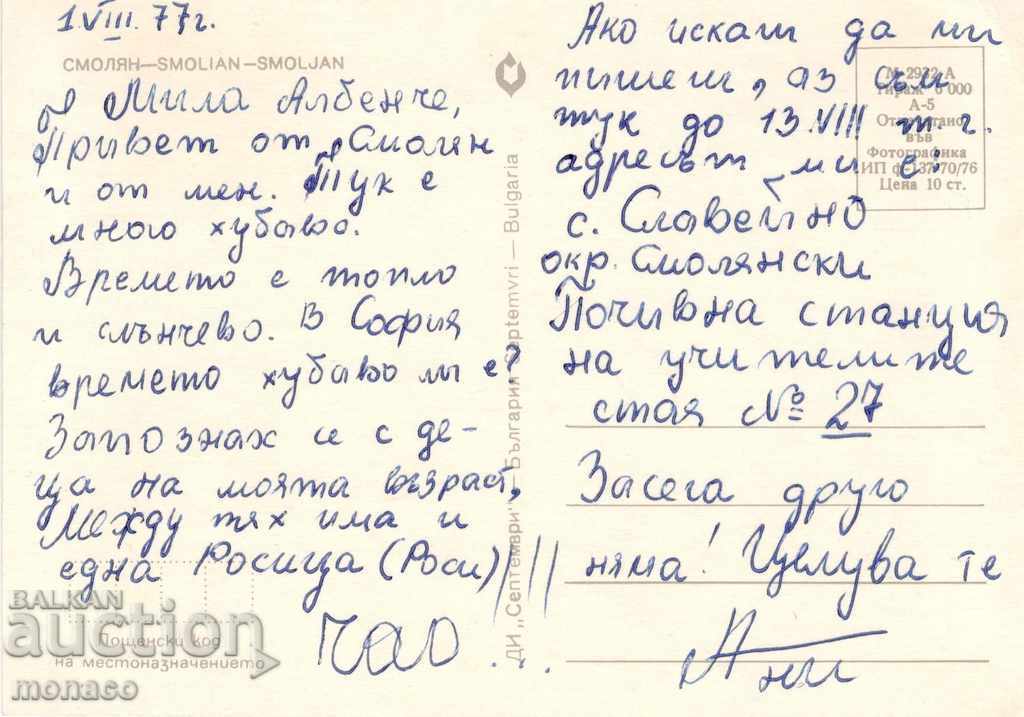 1 VIII. 77г.
СМОЛЯН—SMOLIAN—SMOLJAN
Мила Албенче,
Привет от Смолян
и от мен. Тук е
много хубаво.
Времето е топло
и слънчево. В София
времето хубаво ли е?
Запознах се с де-
ца на моята възраст,
Между тях има и
една Росица (Роси)
чао...
Пощенски код
на местоназначението
ДИ „Септември“ — България — Septemvri — Bulgaria
Ако искаш да ми
пишеш, аз съм
тук до 13.VIII т.г.
адресът ми е:
с. Славейно
окр. Смолянски
Почивна станция
на учителите
стая № 27
Засега друго
няма! Целува те
Ани
№ 2932-А
Тираж 6 000
А-5
Отпечатано
във
Фотографика
ИП ф-137/70/76
Цена 10 ст.
BALKAN
auction
monaco